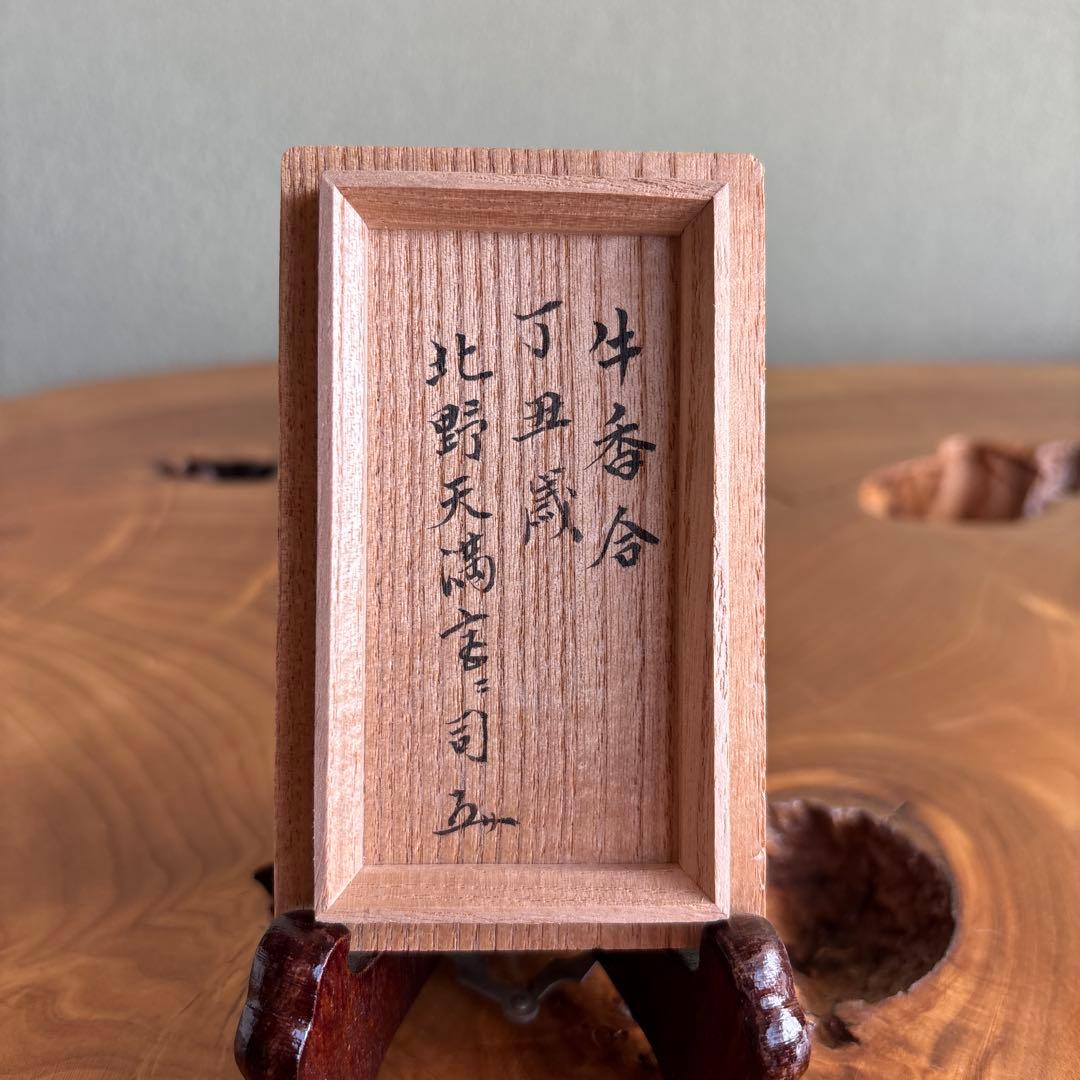 牛香合
丁丑歳
北野天満宮ニ司